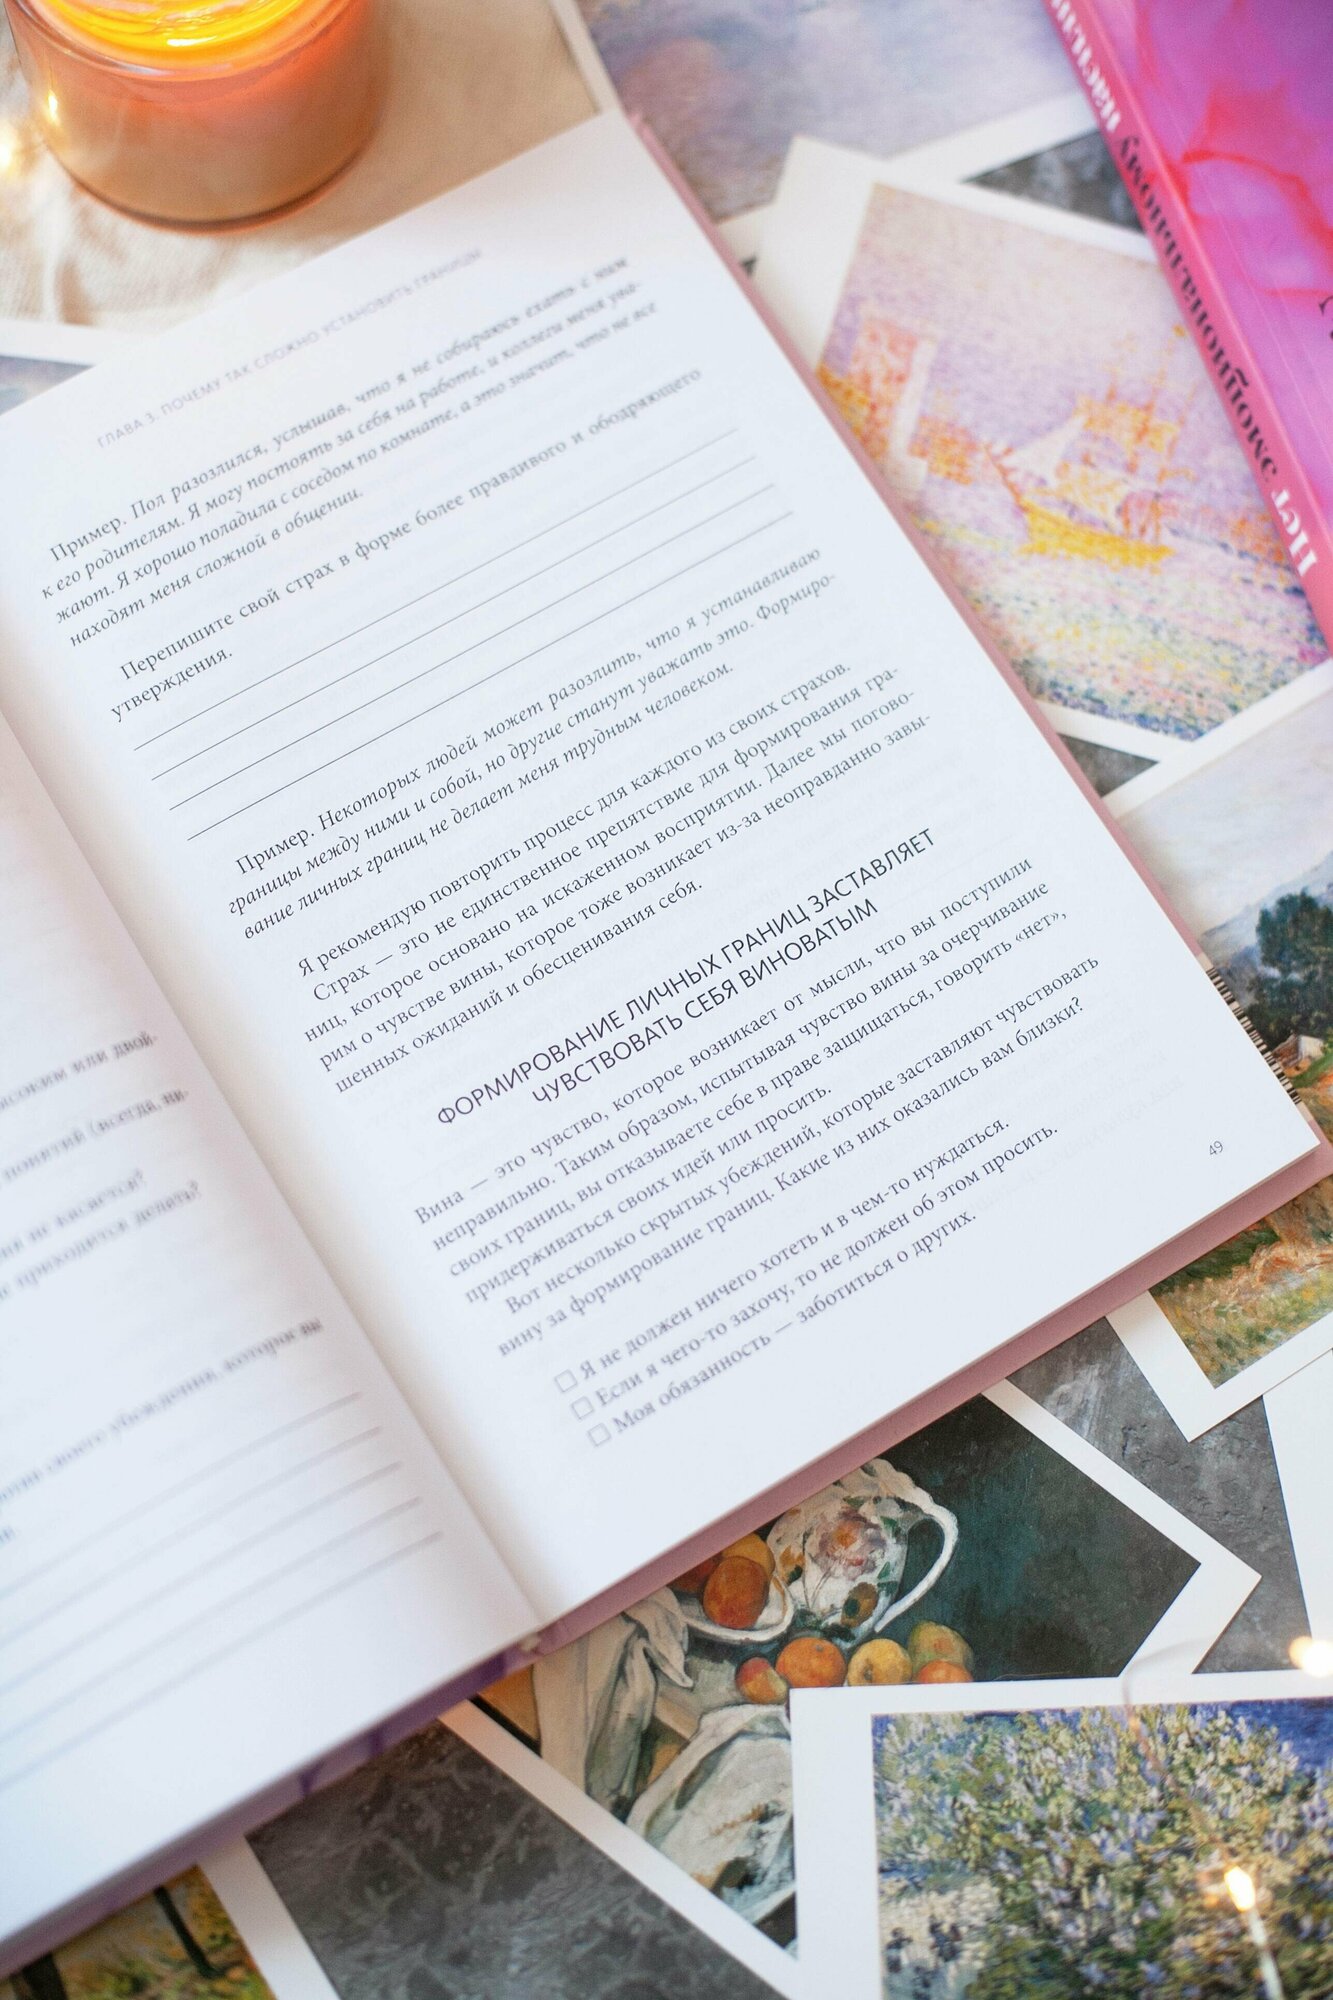 ясоким или двой-
понятий (всегда, ни-
ния не касается?
приходится делать?
своего убеждения, которое вы
ГЛАВА 3. ПОЧЕМУ ТАК СЛОЖНО УСТАНОВИТЬ ГРАНИЦЫ
Пример. Пол разозлился, услышав, что я не собираюсь ехать с ним
к его родителям. Я могу постоять за себя на работе, и коллеги меня ува-
жают. Я хорошо поладила с соседом по комнате, а это значит, что не все
находят меня сложной в общении.
Перепишите свой страх в форме более правдивого и ободряющего
утверждения.
Пример. Некоторых людей может разозлить, что я устанавливаю
границы между ними и собой, но другие станут уважать это. Формиро-
вание личных границ не делает меня трудным человеком.
Я рекомендую повторить процесс для каждого из своих страхов.
Страх — это не единственное препятствие для формирования гра-
ниц, которое основано на искаженном восприятии. Далее мы погово-
рим о чувстве вины, которое тоже возникает из-за неоправданно завы-
шенных ожиданий и обесценивания себя.
ФОРМИРОВАНИЕ ЛИЧНЫХ ГРАНИЦ ЗАСТАВЛЯЕТ
ЧУВСТВОВАТЬ СЕБЯ ВИНОВАТЫМ
Вина — это чувство, которое возникает от мысли, что вы поступили
неправильно. Таким образом, испытывая чувство вины за очерчивание
своих границ, вы отказываете себе в праве защищаться, говорить «нет»,
придерживаться своих идей или просить.
Вот несколько скрытых убеждений, которые заставляют чувствовать
вину за формирование границ. Какие из них оказались вам близки?
☐ Я не должен ничего хотеть и в чем-то нуждаться.
☐ Если я чего-то захочу, то не должен об этом просить.
☐ Моя обязанность — заботиться о других.
49
Нет эмоциональному